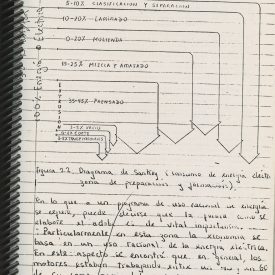 5-10% CLASIFICACION Y SEPARACION
10-20% LAMINADO
0-20% MOLIENDA
15-25% MEZCLA Y AMASADO
35-45% PRENSADO
2-3% VACIO
100% Energia Electrica
Figura 2.2. Diagrama de Sankey (consumo de energia electr
zona de preparacion y
En lo que a un programa de uso racional de energia
se puede decirse que la como se
elabore el adobe es de vital importancia.
Particularmente en esta zona la economia se
basa en un uso racional de la energia eléctrica.
En este aspecto se encontró que en general, los
motores estaban trabajando entre